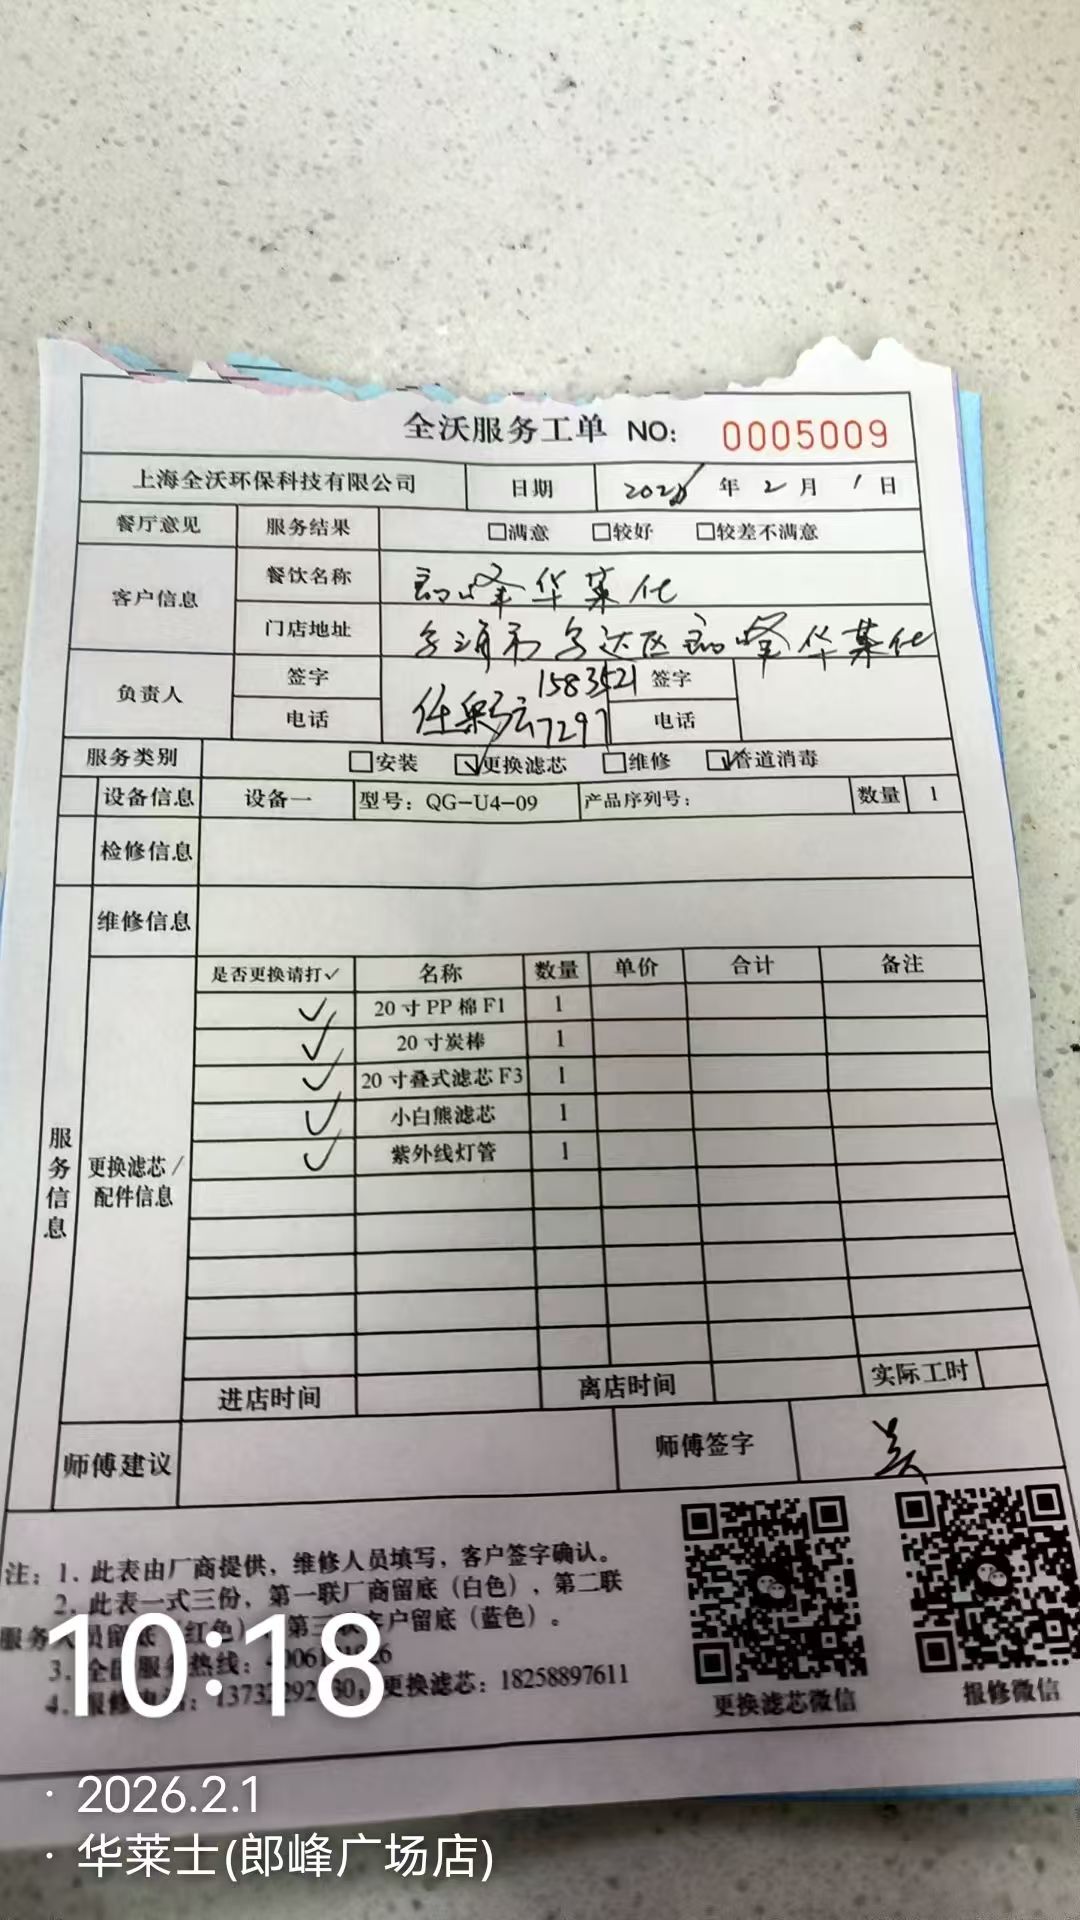 全沃服务工单 NO: 0005009
上海全沃环保科技有限公司 日期 2026 年 2 月 1 日
餐厅意见 服务结果 □满意 □较好 □较差不满意
客户信息 餐饮名称 郎峰华莱仕
门店地址 郎峰华莱仕
负责人 签字 任 签字
电话 15835217297 电话
服务类别 □安装 ☑更换滤芯 □维修 ☑管道消毒
设备信息 设备一 型号：QG-U4-09 产品序列号： 数量 1
检修信息
维修信息
服务信息
更换滤芯/配件信息
是否更换请打✓ 名称 数量 单价 合计 备注
✓ 20寸PP棉F1 1
✓ 20寸炭棒 1
✓ 20寸叠式滤芯F3 1
✓ 小白熊滤芯 1
✓ 紫外线灯管 1
进店时间 离店时间 实际工时
师傅建议 师傅签字 吴
注：1. 此表由厂商提供，维修人员填写，客户签字确认。
2. 此表一式三份，第一联厂商留底（白色），第二联
服务人员留底（红色），第三联客户留底（蓝色）。
3. 全国服务热线：
4. 报修电话： 更换滤芯：18258897611
更换滤芯微信 报修微信
10:18
· 2026.2.1
· 华莱士(郎峰广场店)